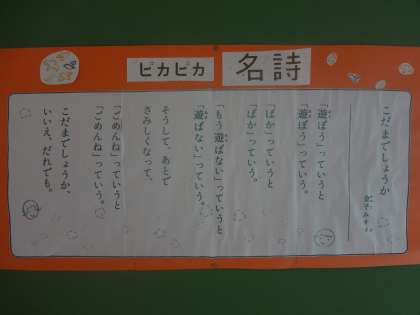 ピカピカ
名詩
こだまでしょうか
金子みすゞ
「遊ぼう」っていうと
「遊ぼう」っていう。
「ばか」っていうと
「ばか」っていう。
「もう遊ばない」っていうと
「遊ばない」っていう。
そうして、あとで
さみしくなって、
「ごめんね」っていうと
「ごめんね」っていう。
こだまでしょうか、
いいえ、だれでも。